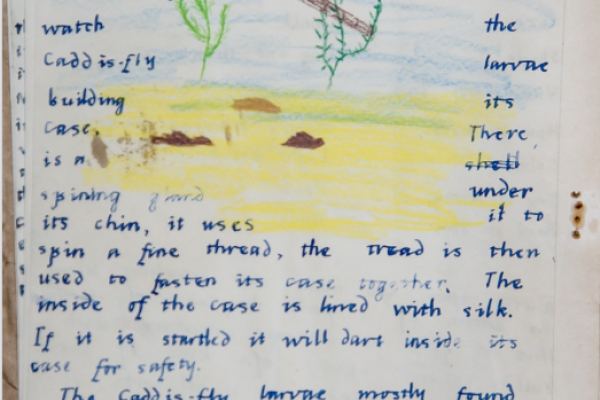 watch the
Caddis-fly larvae
building its
case. There
is a shell
spining gland under
its chin, it uses it to
spin a fine thread, the tread is then
used to fasten its case together. The
inside of the case is lined with silk.
If it is startled it will dart inside its
case for safety.
The Caddis-fly larvae mostly found